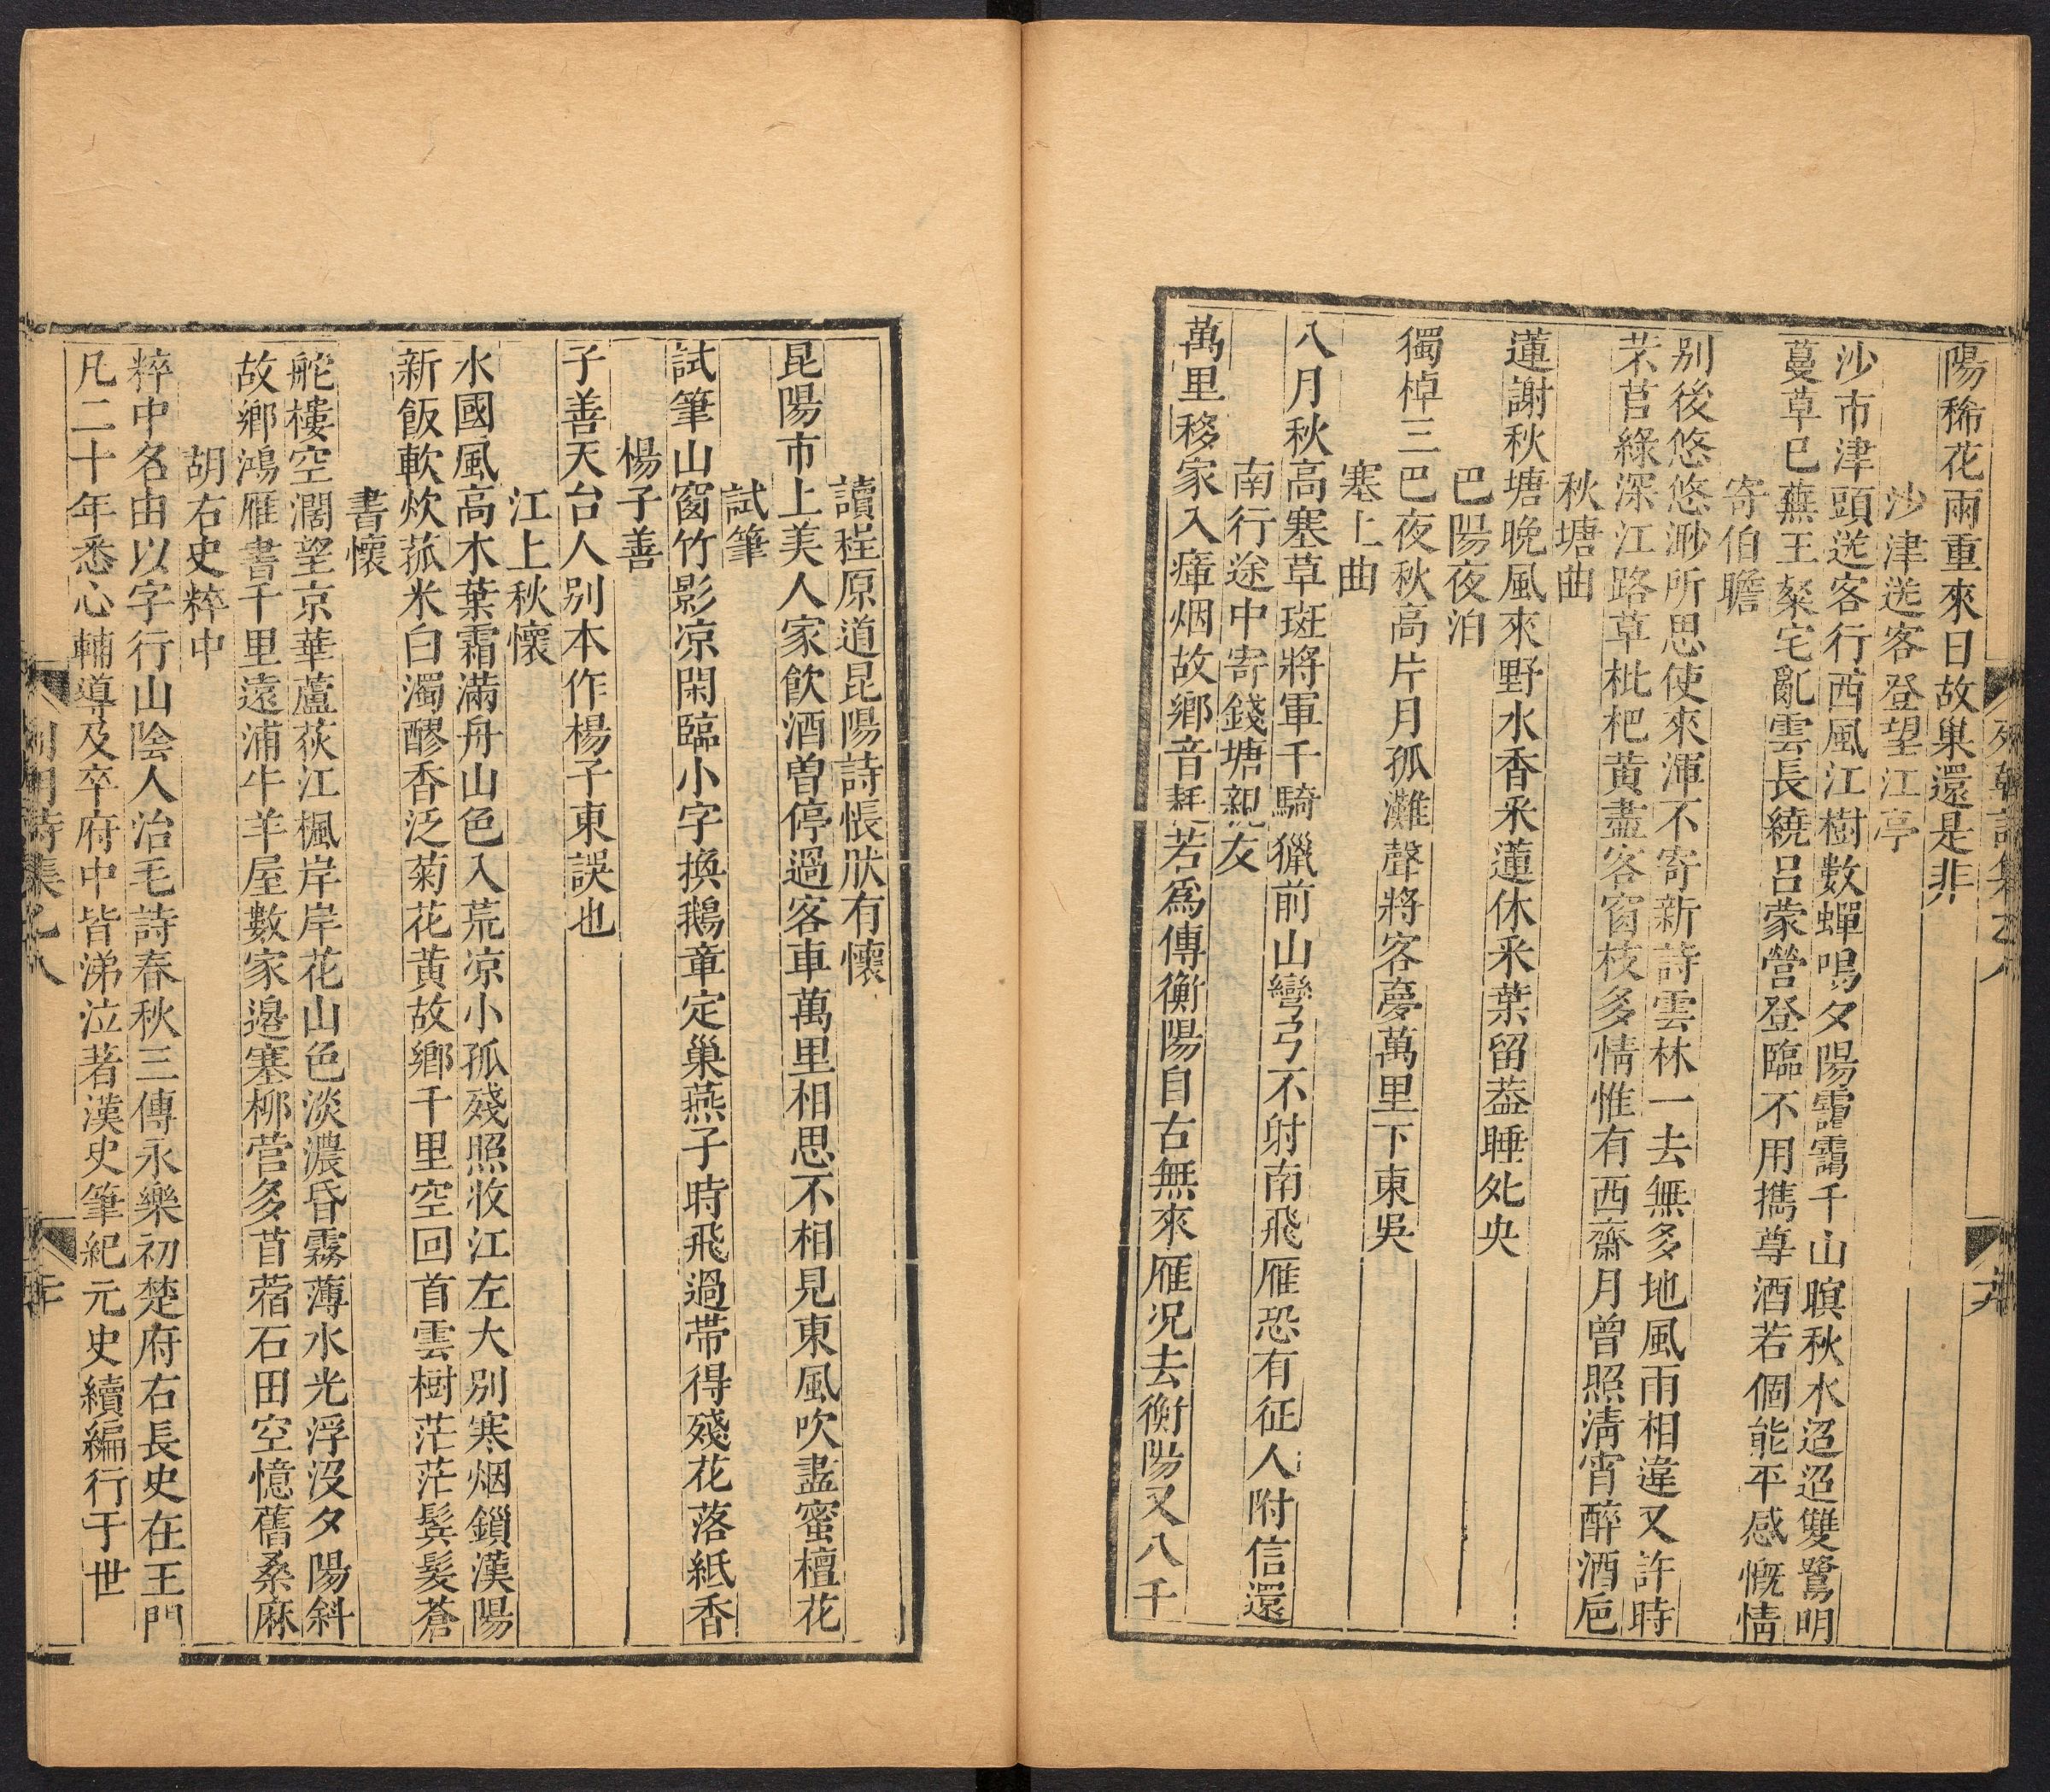 陽稀花雨重來日故巢還是非
沙津送客登望江亭
沙市津頭送客行西風江樹數蟬鳴夕陽靄靄千山暝秋水迢迢雙鷺明
蔓草已蕪王粲宅亂雲長繞呂蒙營登臨不用攜尊酒若個能平感慨情
寄伯瞻
別後悠悠渺所思使來渾不寄新詩雲林一去無多地風雨相違又許時
苿苢綠深江路草枇杷黃盡客窗枝多情惟有西齋月曾照清宵醉酒卮
秋塘曲
蓮謝秋塘晚風來野水香采蓮休采葉留葢睡鴛央
巴陽夜泊
獨棹三巴夜秋高片月孤灘聲將客夢萬里下東吳
塞上曲
八月秋高塞草斑將軍千騎獵前山彎弓不射南飛雁恐有征人附信還
南行途中寄錢塘親友
萬里移家入瘴烟故鄉音耗若為傳衡陽自古無來雁况去衡陽又八千
讀程原道昆陽詩悵狀有懷
昆陽市上美人家飲酒曽停過客車萬里相思不相見東風吹盡蜜檀花
試筆
試筆山窗竹影凉閑臨小字換鵝章定巢燕子時飛過帶得殘花落紙香
楊子善
子善天台人別本作楊子東誤也
江上秋懷
水國風高木葉霜滿舟山色入荒凉小孤殘照收江左大別寒烟鎻漢陽
新飯軟炊菰米白濁醪香泛菊花黃故鄉千里空回首雲樹茫茫鬂髮蒼
書懷
舵樓空濶望京華蘆荻江楓岸岸花山色淡濃昏霧薄水光浮沒夕陽斜
故鄉鴻雁書千里遠浦牛羊屋數家邉塞柳营多苜蓿石田空憶舊桑麻
胡右史粹中
粹中名由以字行山陰人治毛詩春秋三傳永樂初楚府右長史在王門
凡二十年悉心輔導及卒府中皆涕泣著漢史筆紀元史續編行于世